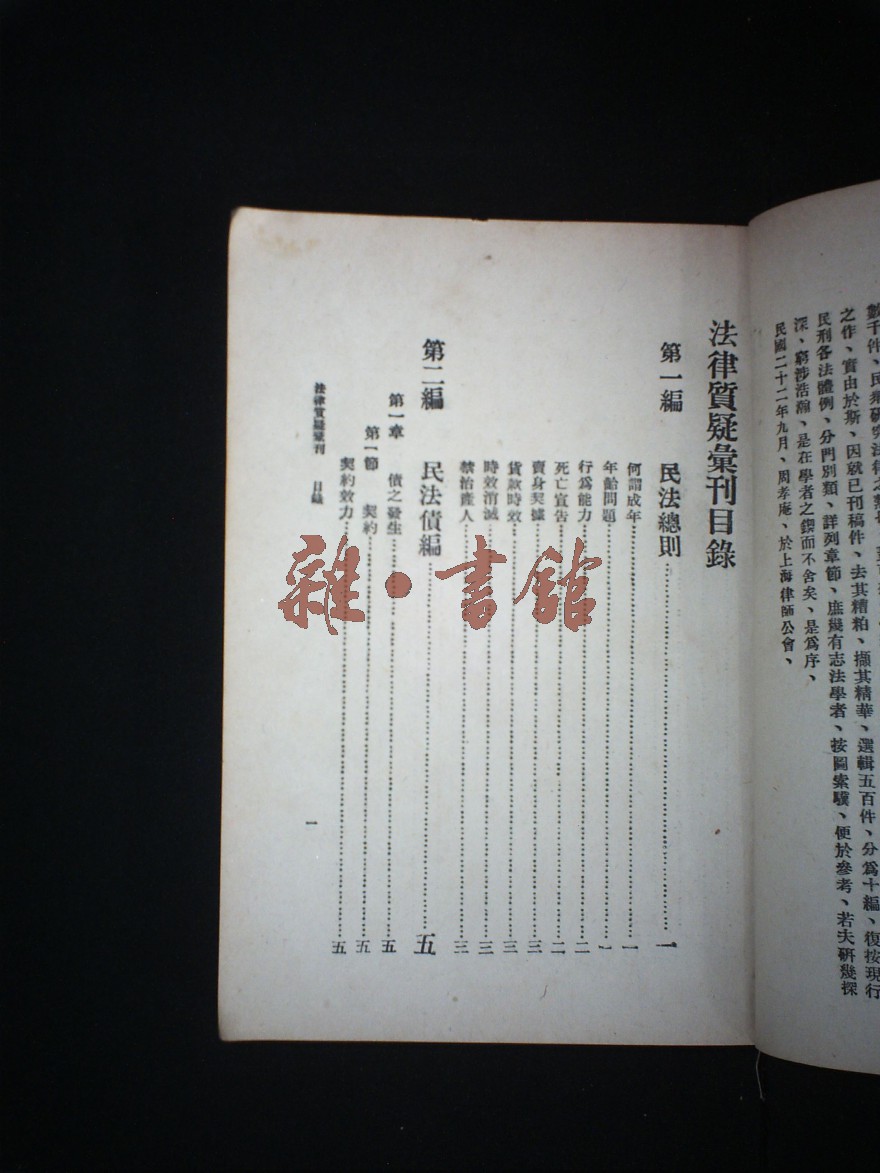 之作、實由於斯、因就已刊稿件、去其糟粕、擷其精華、選輯五百件、分爲十編、復按現行
民刑各法體例、分門別類、詳列章節、庶幾有志法學者、按圖索驥、便於參考、若夫研幾探
深、窮涉浩瀚、是在學者之鍥而不舍矣、是爲序、
民國二十二年九月、周孝庵、於上海律師公會、
法律質疑彙刊目錄
第一編 民法總則 一
何謂成年 一
年齡問題 一
行爲能力 二
死亡宣告 二
賣身契據 三
貨款時效 三
時效消滅 三
禁治產人 三
第二編 民法債編 五
第一章 債之發生 五
第一節 契約 五
契約效力 五
法律質疑彙刊 目錄
一
雜·書館